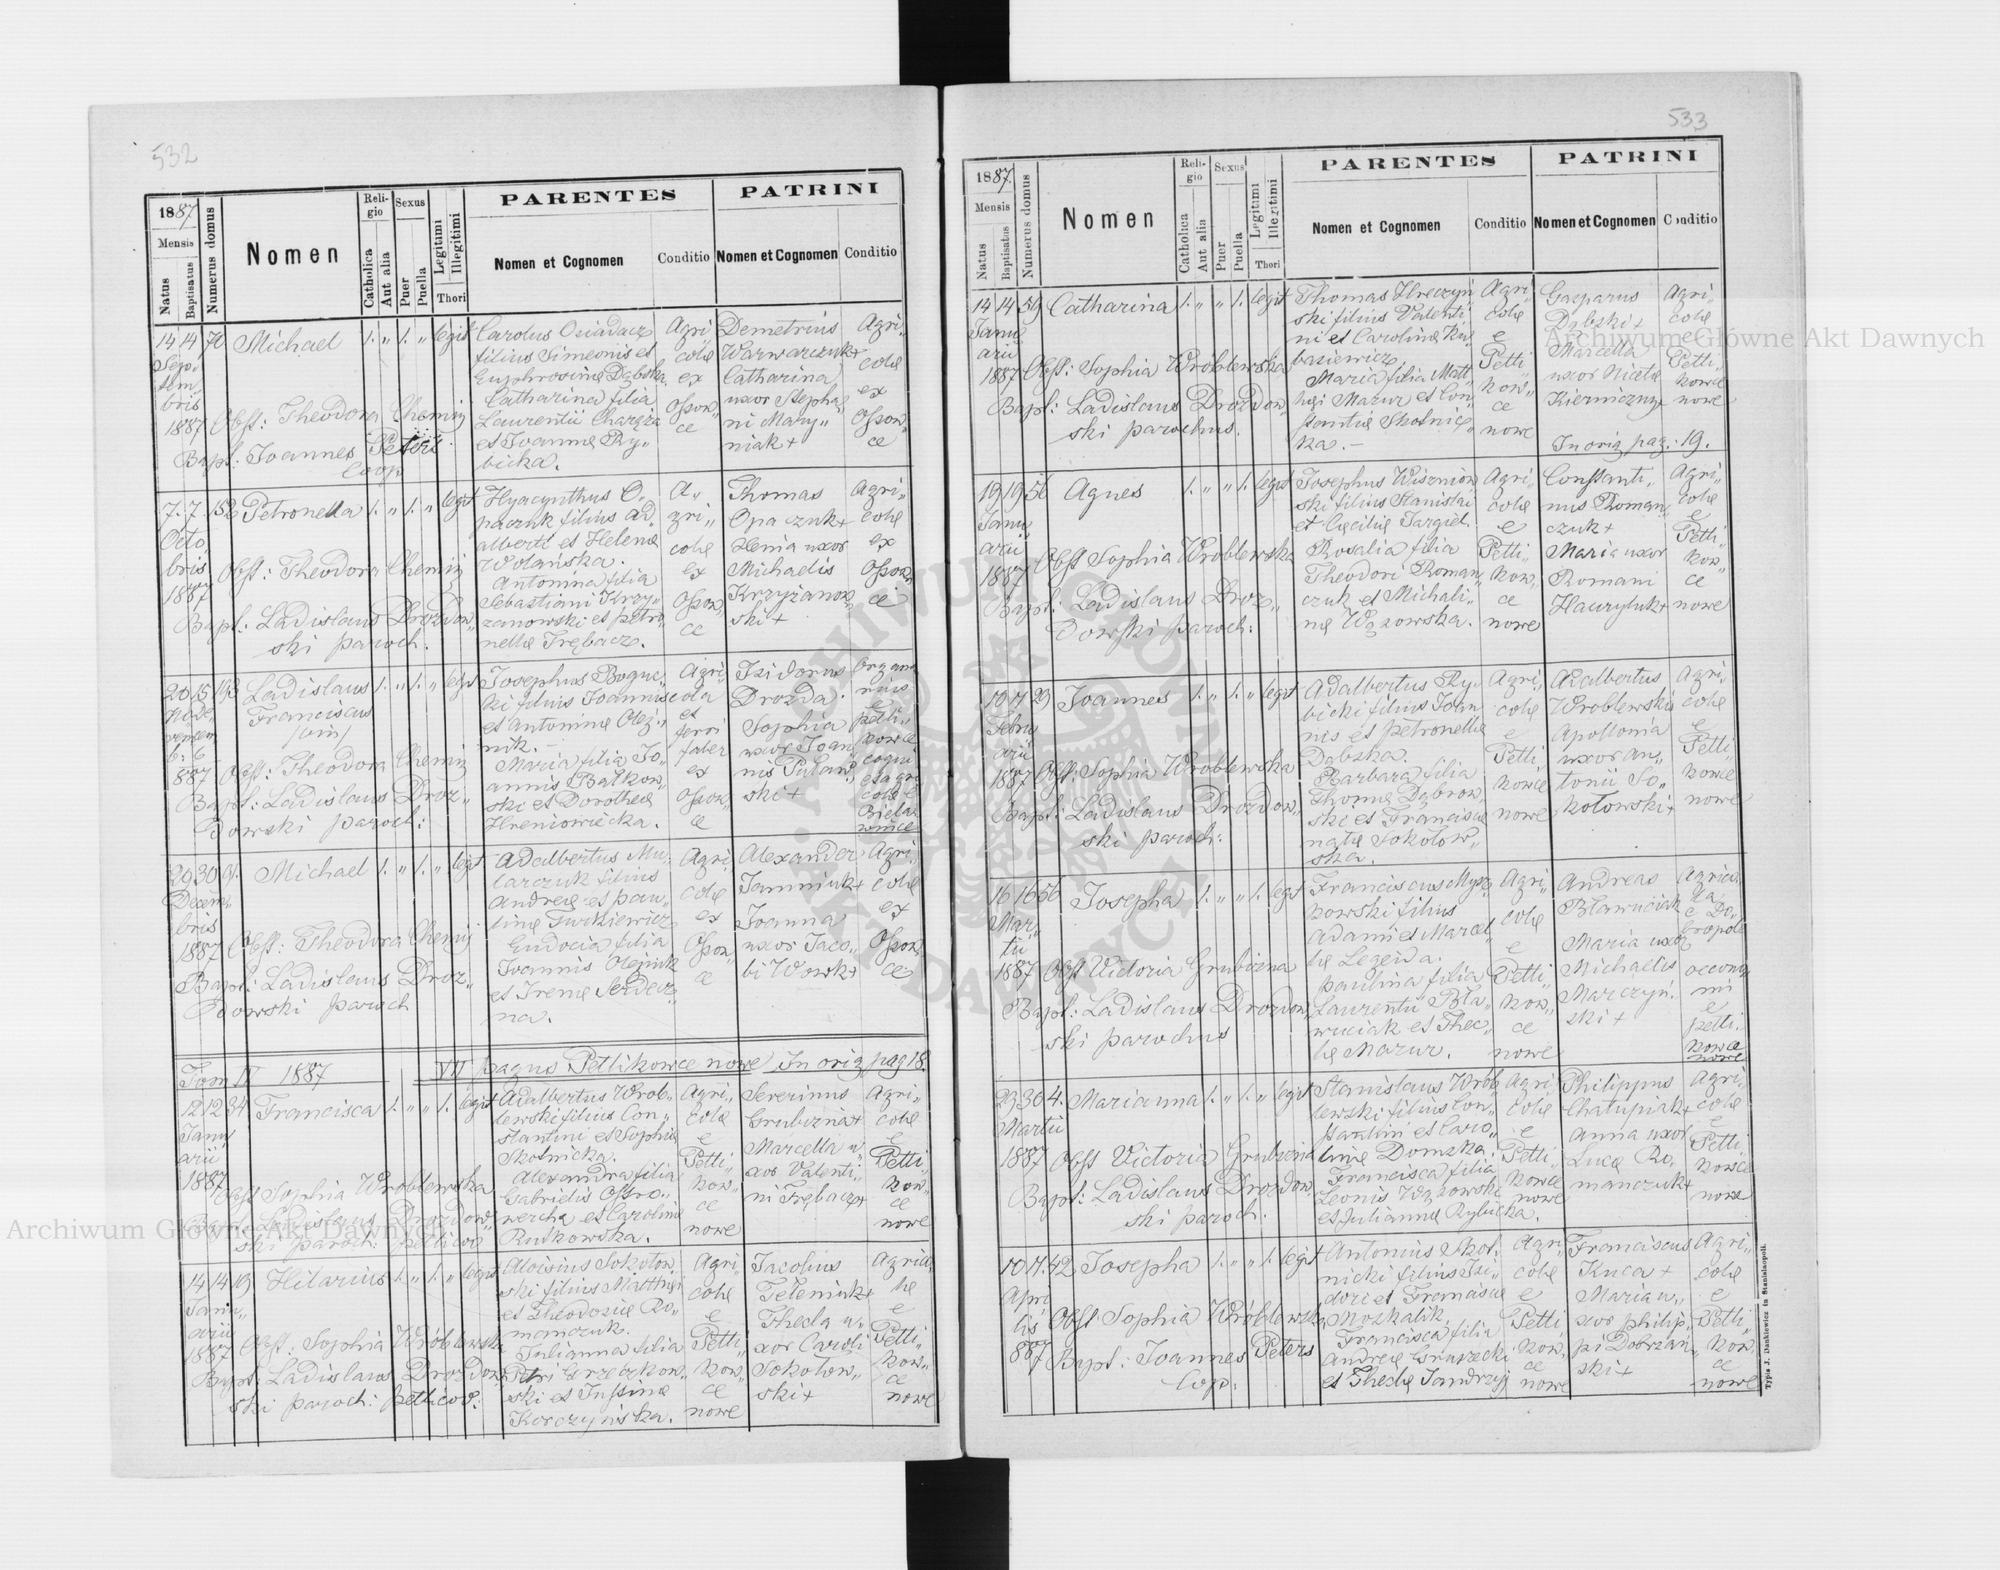 532
1887
Mensis
Natus
Baptisatus
Numerus domus
Nomen
Religio
Catholica
Aut alia
Sexus
Puer
Puella
Legitimi
Illegitimi
Thori
PARENTES
Nomen et Cognomen
Conditio
PATRINI
Nomen et Cognomen
Conditio
14 14 70 Michael 1. „ 1. „ legit
Septembris
1887
Obst: Theodora Chemij
Bapt: Joannes Peters
Coop
Carolus Osiadacz
filius Simeonis et
Euphrosinę Dąbska.
Catharina filia
Laurentii Charęża
et Joannę Ry„
bicka.
Agri„
colę
ex
Osson„
ce
Demetrius
Warwarczuk+
Catharina
uxor Stepha„
ni Mary„
niak+
Agri„
colę
ex
Osson„
ce
7. 7. 152 Petronella 1. „ 1. „ legit
Octo
bris
1887
Obst: Theodora Chemij
Bapt: Ladislaus Drozdow„
ski paroch.
Hyacynthus O„
paczuk filius Ad„
alberti et Helenę
Wolańska.
Antonina filia
Sebastiani Krzy„
zanowski et Petro„
nellę Trębacz.
A„
gri„
colę
ex
Osson„
ce
Thomas
Opaczuk+
Xenia uxor
Michaelis
Krzyżanow„
ski+
Agri„
colę
ex
Osson„
ce
20 15 193 Ladislaus 1. „ 1. „ legit
Franciscus
887
Obst: Theodora Chemij
Bapt: Ladislaus Droz„
dowski paroch:
Josephus Boguc„
ki filius Joannis
et Antoninę Olej„
nik. –
Maria filia Jo„
annis Bałkow„
ski et Dorotheę
Hreniowiecka.
Agri„
cola
et
ferri
faber
ex
Osson„
ce
Isidorus
Drozda.
Sophia
uxor Joan„
nis Puław„
ski+
20 30 91. Michael 1. „ 1. „ legit
Decem„
bris
1887
Obst: Theodora Chemij
Bapt: Ladislaus Droz„
dowski paroch
Adalbertus Mu„
larczuk filius
Andreę et Pau„
linę Turkiewicz
Eudocia filia
Joannis Olejnik
et Irenę Serdecz„
na.
Agri„
colę
ex
Osson„
ce
Alexander
Jamniuk+
Joanna
uxor Jaco„
bi Wowk+
Agri„
colę
ex
Osson„
ce
Tom IV 1887 VII pagus Petlikowce nowe In orig pag 18.
12 12 34 Francisca 1. „ „ 1. legit
Janu„
arii
1887
Obst Sophia Wróblewska
Bapt: Ladislaus Drozdow„
ski paroch: petlicov
Adalbertus Wrob„
lewski filius Con„
stantini et Sophię
Skotnicka.
Alexandra filia
Gabrielis Ostro„
wercha et Carolinę
Rutkowska.
Agri„
colę
e
Petli„
kow„
ce
nowe
Severinus
Grubizna+
Marcella u„
xor Valenti„
ni Trębacz+
Agri„
colę
e
Petli„
kow„
ce
nowe
14 14 19 Hilarius 1. „ 1. „ legit
Janu„
arii
1887
Obst: Sophia Wróblewska
Bapt: Ladislaus Drozdow„
ski paroch: petlicov:
Aloisius Sokołow„
ski filius Matthęi
et Theodozię Ro„
manczuk.
Julianna filia
Petri Grzeczkow„
ski et Justinę
Korczyńska.
Agri„
colę
e
Petli„
kow„
ce
nowe
Jacobus
Teleniuk+
Thecla u„
xor Caroli
Sokołow„
ski+
Agrico„
lę
e
Petli„
kow„
ce
nowe
533
1887.
Mensis
Natus
Baptisatus
Numerus domus
Nomen
Religio
Catholica
Aut alia
Sexus
Puer
Puella
Legitimi
Illegitimi
Thori
PARENTES
Nomen et Cognomen
Conditio
PATRINI
Nomen et Cognomen
Conditio
14 14 59 Catharina 1. „ „ 1. legit
Janu„
arii
1887
Obst: Sophia Wróblewska
Bapt: Ladislaus Drozdow„
ski parochus.
Thomas Hreczyń„
ski filius Valenti„
ni et Carolinę Ku„
basiewicz.
Maria filia Matt„
hęi Mazur et Con„
stantię Skotnic„
ka. –
Agri„
colę
e
Petli„
kow„
ce
nowe
Gasparus
Dąbski+
Marcella
uxor Nicetę
Kierniczny+
In orig pag. 19.
Agri„
colę
e
Petli„
kowce
nowe
19 19 56 Agnes 1. „ „ 1. legit
Janu„
arii
1887
Obst Sophia Wróblewska
Bapt: Ladislaus Droz„
dowski paroch:
Josephus Wiszniow„
ski filius Stanislai
et Cęcilię Targiel.
Rosalia filia
Theodori Roman„
czuk et Michali„
nę Wązowska.
Agri„
colę
e
Petli„
kow„
ce
nowe
Constanti„
nus Roman„
czuk+
Maria uxor
Romani
Hawryluk+
Agri„
colę
e
Petli„
kow„
ce
nowe
10 17 29 Joannes 1. „ 1. „ legit
Febru
arii
1887
Obst: Sophia Wróblewska
Bapt: Ladislaus Drozdow„
ski paroch:
Adalbertus Ry„
bicki filius Joan„
nis et Petronellę
Dąbska.
Barbara filia
Thomę Dąbrow„
ski et Francisca
natę Sokołow„
ska.
Agri„
colę
e
Petli„
kowce
nowe
Adalbertus
Wroblewski+
Apollonia
uxor An„
tonii So„
kołowski+
Agri„
colę
e
Petli„
kowce
nowe
16 16 56 Josepha 1. „ „ 1. legit
Mar„
tii
1887
Obst Victoria Grubizna
Bapt: Ladislaus Drozdow„
ski parochus
Franciscus Mysz„
kowski filius
Adami et Marcel„
lę Legeida.
Paulina filia
Laurentii Bła„
wuciak et Thec„
lę Mazur.
Agri„
colę
e
Petli„
kow„
ce
nowe
Andreas
Bławuciak
Maria uxor
Michaelis
Marczyń„
ski+
Agrico„
la
e Do„
bropole
oecono„
mi
e
Petli„
kowce
nowe
23 30 4. Marianna 1. „ 1. „ legit
Martii
1887
Obst Victoria Grubizna
Bapt: Ladislaus Drozdow„
ski paroch:
Stanislaus Wrób„
lewski filius Con„
stantini et Caro„
linę Domzka.
Francisca filia
Leonis Wązowski
et Juliannę Rybicka.
Agri„
colę
e
Petli„
kowce
nowe
Philippus
Chałupiak+
Anna uxor
Lucę Ro„
manczuk+
Agri„
colę
e
Petli„
kowce
nowe
10 17. 42 Josepha 1. „ „ 1. legit
Apri
lis
887
Obst Sophia Wróblewska
Bapt: Joannes Peters
Cop.
Antonius Skot„
nicki filius Isi„
dori et Franciscę
Moskalik.
Francisca filia
Andreę Gruszecki
et Theclę Jandrzyj
Agri„
colę
e
Petli„
kow„
ce
nowe
Franciscus
Kuca+
Maria u„
xor Philip„
pi Dobrzań„
ski+
Agri„
colę
e
Petli„
kow„
ce
nowe
Typis J. Dankiewicz in Stanislaopoli.
Archiwum Główne Akt Dawnych
Archiwum Główne Akt Dawnych
ARCHIWUM GŁÓWNE AKT DAWNYCH